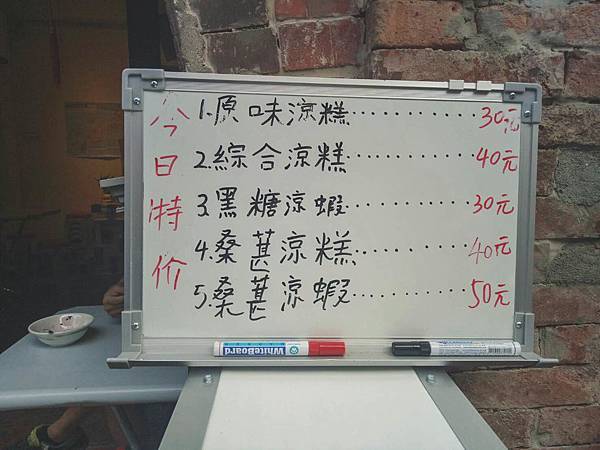 今日特价
1.原味涼糕…………30元
2.綜合涼糕…………40元
3.黑糖涼蝦…………30元
4.桑葚涼糕…………40元
5.桑葚涼蝦…………50元
WhiteBoard